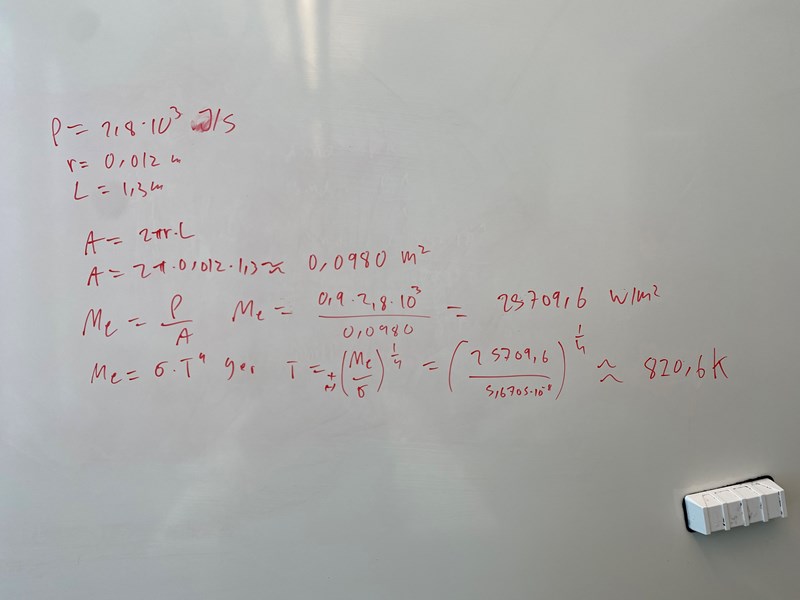 P = 2,8·10³ J/s
r = 0,012 m
L = 1,3 m
A = 2πr·L
A = 2π·0,012·1,3 ≈ 0,0980 m²
Me = P/A Me = (0,9·2,8·10³)/0,0980 = 25709,6 W/m²
Me = σ·T⁴ ger T = (Me/σ)^(1/4) = (25709,6/5,6705·10⁻⁸)^(1/4) ≈ 820,6 K